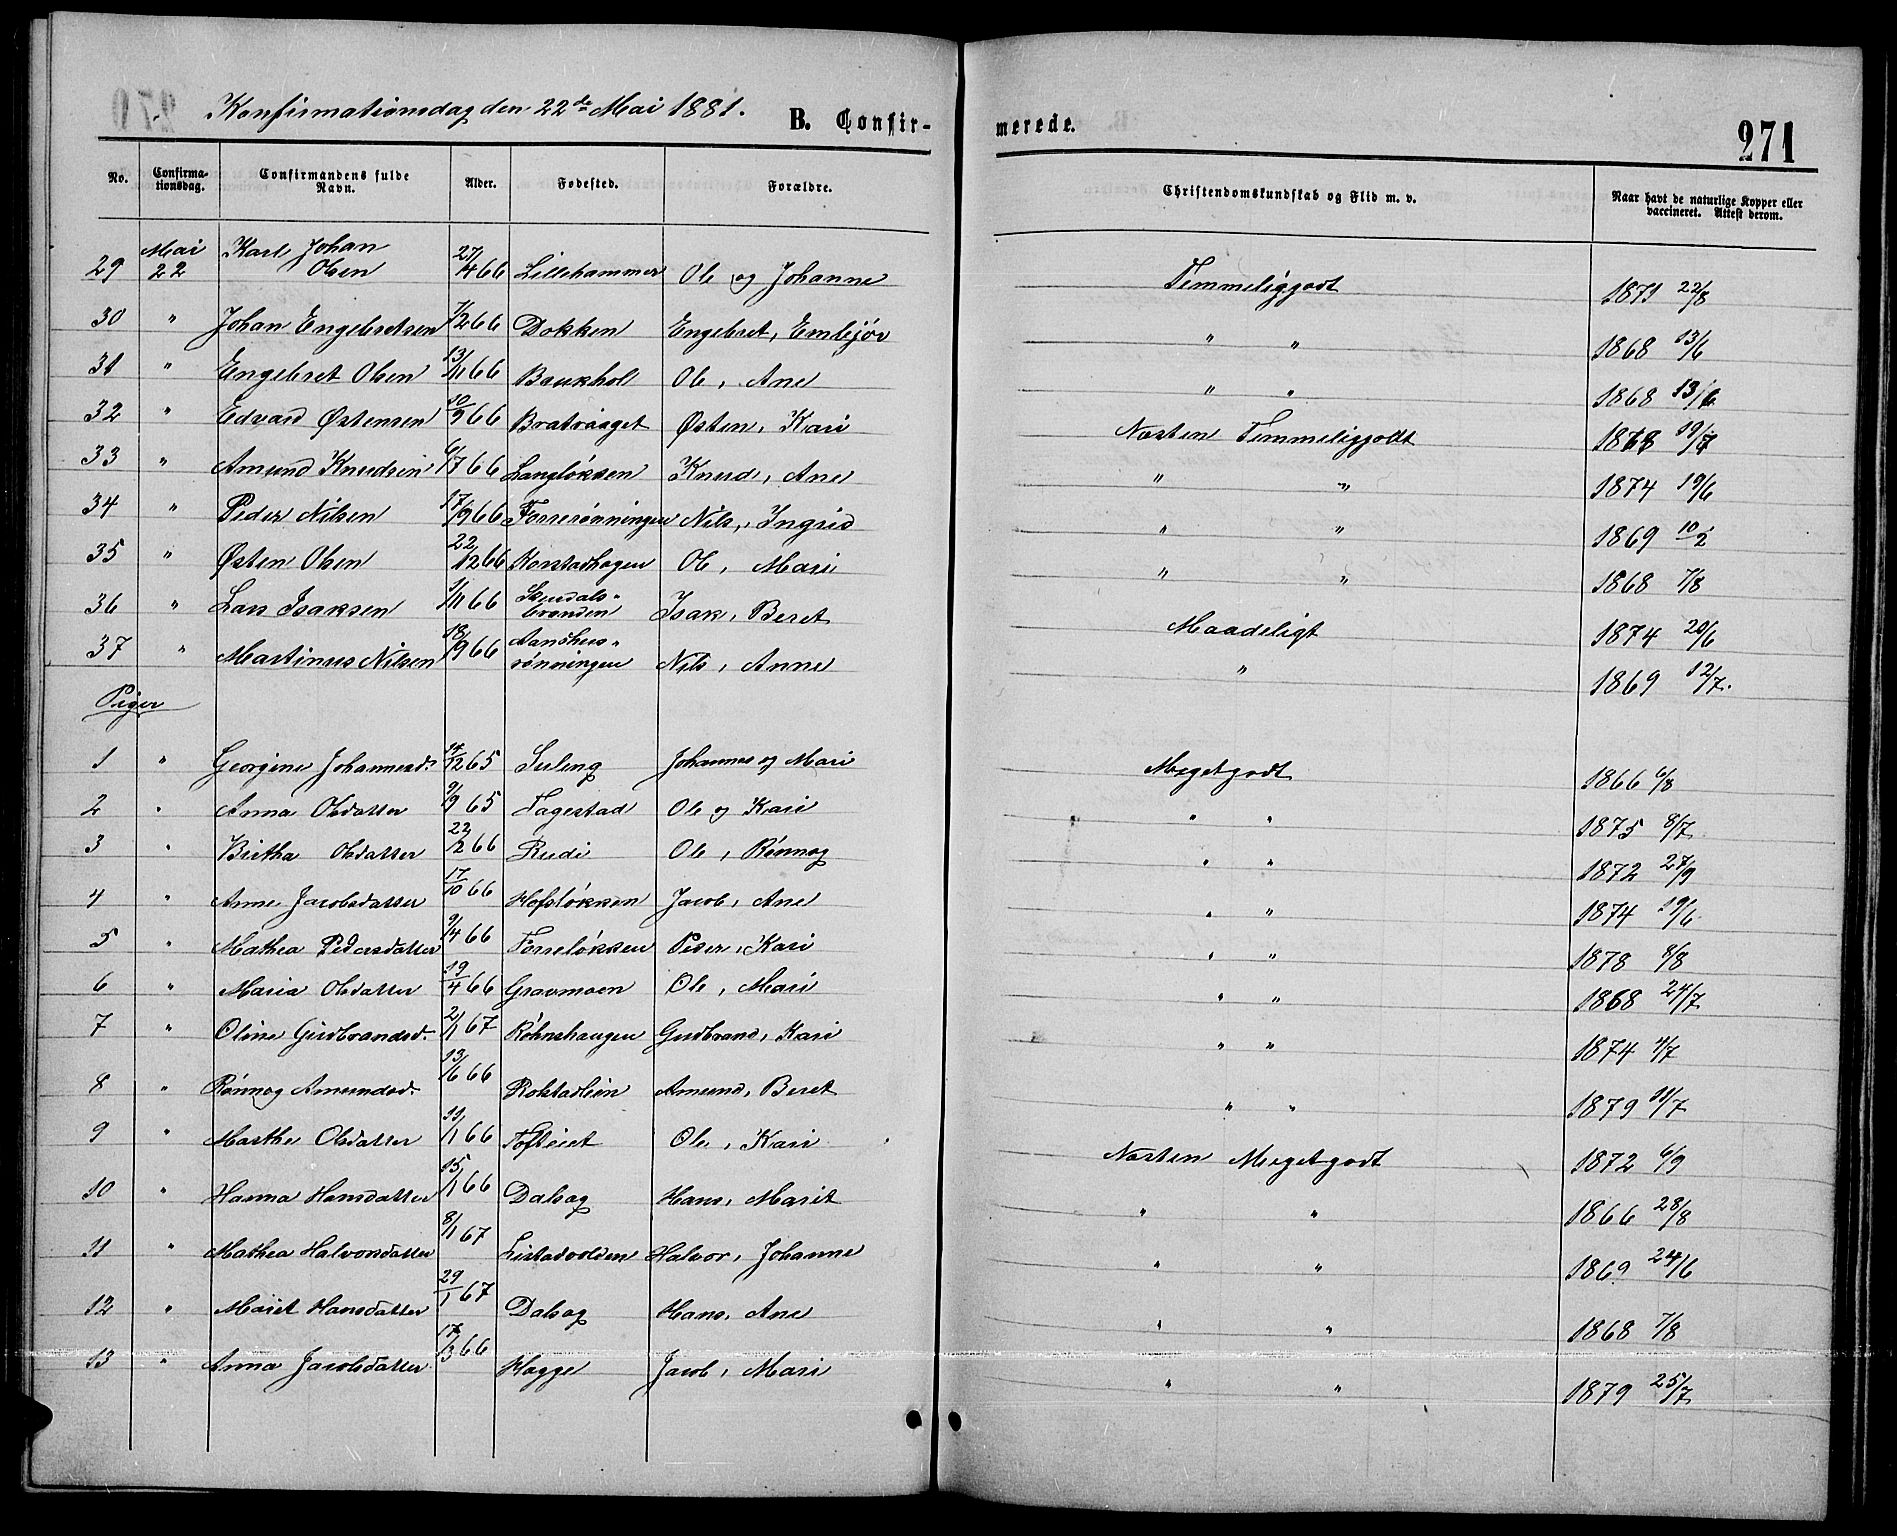 Konfirmationsdag den 22de Mai 1881. B. Confir- merede. 271
No. Confirma-tionsdag. Confirmandens fulde Navn. Alder. Fødested. Forældre. Christendomskundskab og Flid m. v. Naar havt de naturlige Kopper eller vaccineret. Attest derom.
29 Mai 22 Karl Johan Olsen 27/4 66 Lillehammer Ole og Johanne Temmeliggodt 1871 22/8
30 " Johan Engebretsen 7/2 66 Dokken Engebret, Embjør " " 1868 13/6
31 " Engebret Olsen 13/11 66 Baukhol Ole, Ane " " 1868 13/6
32 " Edvard Østensen 10/9 66 Bratvaaget Østen, Kari Næsten Temmeliggodt 1868 19/7
33 " Amund Knudsen 6/7 66 Langløkken Knud, Ane " " 1874 19/6
34 " Peder Nilsen 17/9 66 Forrerønningen Nils, Ingrid " " 1869 10/2
35 " Østen Olsen 22/12 66 Korstadhagen Ole, Mari " " 1868 7/8
36 " Lars Isaksen 1/11 66 Isak, Beret Maadeligt 1874 20/6
37 " Martinus Nilsen 18/9 66 Aandhus-rønningen Nils, Anne " 1869 12/7.
Piger
1 " Georgine Johannesd. 14/12 65 Suleng Johannes og Mari Megetgodt 1866 6/8
2 " Anna Olsdatter 9/9 65 Fagestad Ole og Kari " " 1875 8/7
3 " Birtha Olsdatter 22/2 66 Rudi Ole, Rønnog " " 1872 27/9
4 " Anne Jacobsdatter 17/10 66 Hofsløkken Jacob, Ane " " 1874 19/6
5 " Mathea Pedersdatter 9/4 66 Forreløkken Peder, Kari " " 1878 8/8
6 " Maria Olsdatter 19/4 66 Gravmoen Ole, Mari " " 1868 24/7
7 " Oline Gudbrandsd. 2/1 67 Røhnehaugen Gudbrand, Kari " " 1874 4/7
8 " Rønnog Amundsd. 13/6 66 Rolstadlien Amund, Beret " " 1879 11/7
9 " Marthe Olsdatter 11/1 66 Tofteiet Ole, Kari Næsten Megetgodt 1872 6/9
10 " Hanna Hansdatter 15/1 66 Dalsæg Hans, Marit " " 1866 28/8
11 " Mathea Halvorsdatter 8/1 67 Listadvolden Halvor, Johanne " " 1869 24/6
12 " Marit Hansdatter 29/1 67 Dalsæg Hans, Ane " " 1868 7/8
13 " Anna Jacobsdatter 17/3 66 Hagge Jacob, Mari " " 1879 25/7